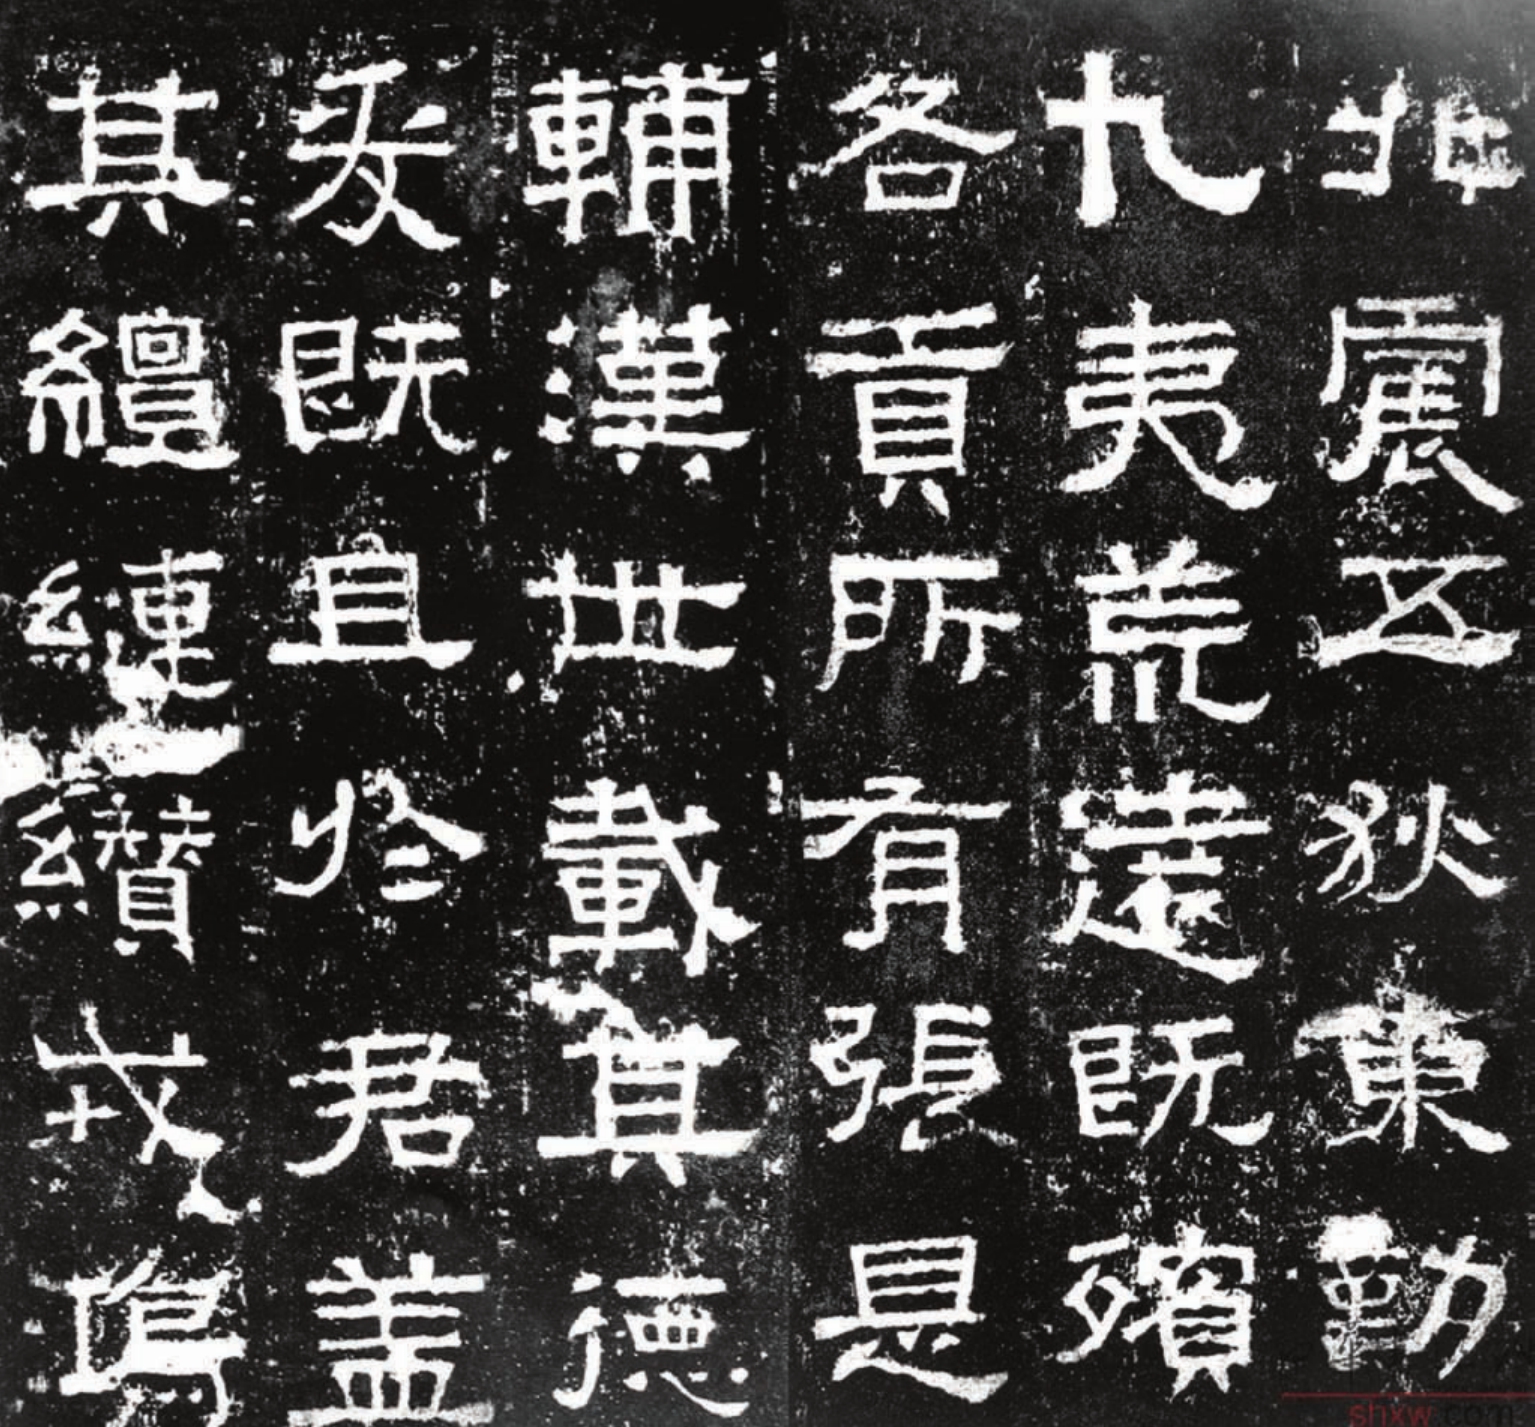 北震五狄東勤
九夷荒遠既殯
各貢所有張是
輔漢世載其德
爰既且於君蓋
其繵縺纘戎鴻
shxw.com